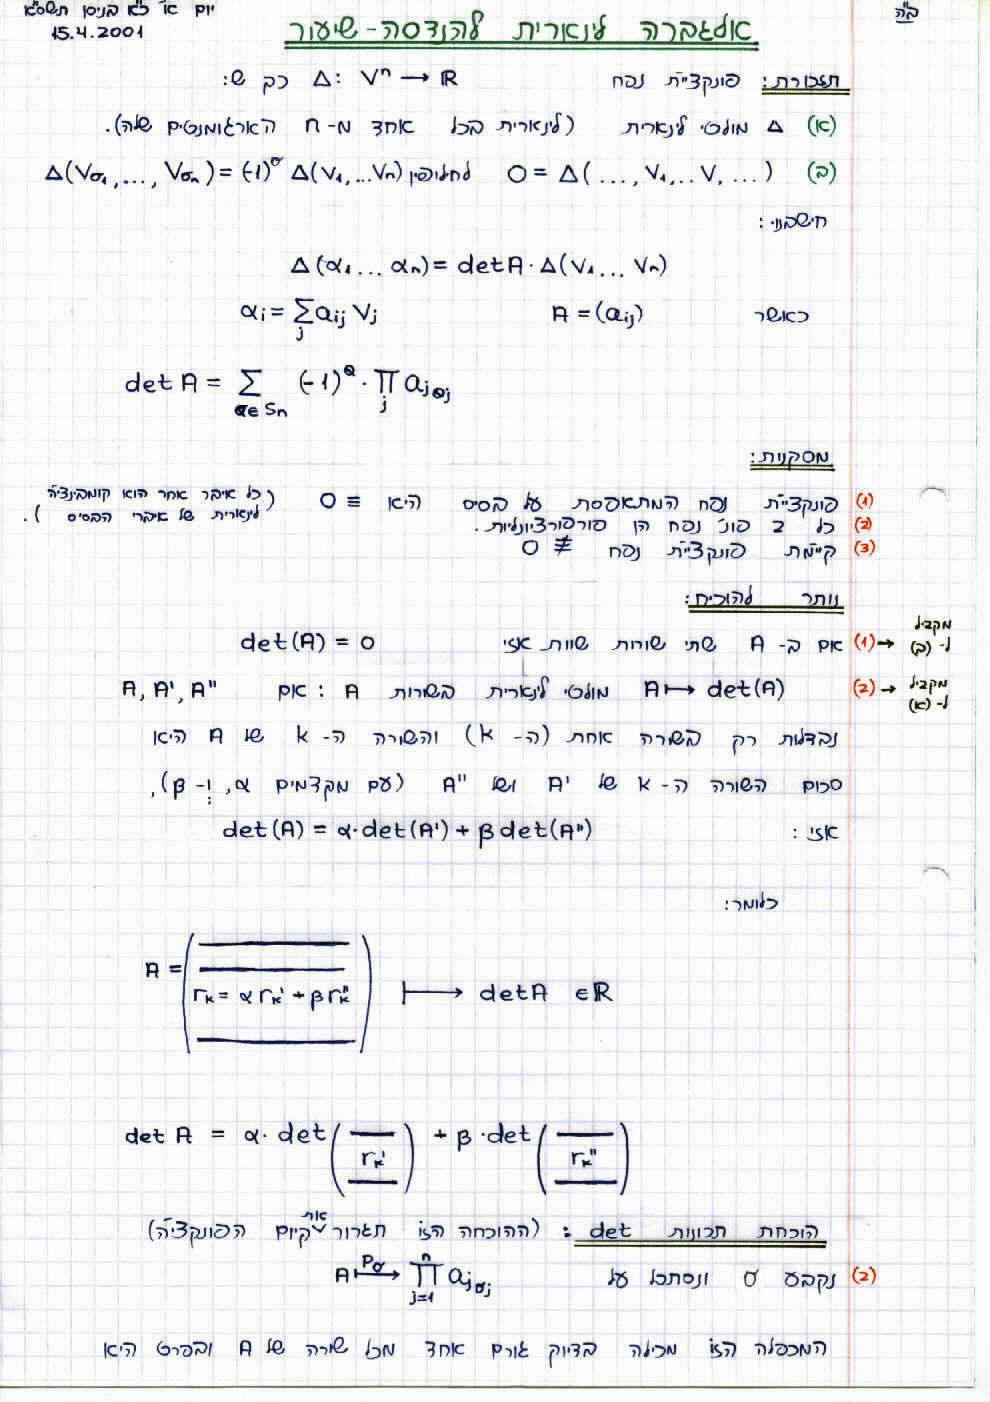 ב"ה
יום א' כ"א בניסן תשס"א
15.4.2001
אלגברה לינארית להנדסה - שיעור
תזכורת: פונקציית נפח Δ: Vⁿ → ℝ כך ש:
(א) Δ מולטי לינארית (לינארית בכל אחד מ-n הארגומנטים שלה).
(ב) 0 = Δ(..., V₁,..V, ...) לחלופין Δ(V_σ₁,..., V_σₙ) = (-1)^σ Δ(V₁,...Vₙ)
חישבנו:
Δ(α₁... αₙ) = det A · Δ(V₁... Vₙ)
כאשר A = (a_ij) α_i = Σ_j a_ij V_j
det A = Σ_{σ∈Sₙ} (-1)^σ · Π_j a_{jσj}
מסקנות:
(1) פונקציית נפח המתאפסת על בסיס היא ≡ 0 (כל איבר אחר הוא קומבינציה לינארית של איברי הבסיס).
(2) כל 2 פונ' נפח הן פורפורציונליות.
(3) קיימת פונקציית נפח ≢ 0
נותר להוכיח:
מקביל ל-(ב) ← (1) אם ב-A שתי שורות שוות אזי det(A) = 0
מקביל ל-(א) ← (2) A ↦ det(A) מולטי לינארית בשורות A: אם A, A', A''
נבדלות רק בשורה אחת (ה-k) והשורה ה-k של A היא
סכום השורה ה-k של A' ושל A'' (עם מקדמים α, ו-β),
אזי: det(A) = α·det(A') + β det(A'')
כלומר:
A = ( r_k = α r_k' + β r_k'' ) ↦ det A ∈ ℝ
det A = α · det( r_k' ) + β · det( r_k'' )
הוכחת תכונות det: (ההוכחה הזו תגרור את קיום הפונקציה)
(2) נקבע σ ונסתכל על A ↦^{P_σ} Π_{j=1}^{n} a_{jσj}
המכפלה הזו מכילה בדיוק גורם אחד מכל שורה של A ובפרט היא